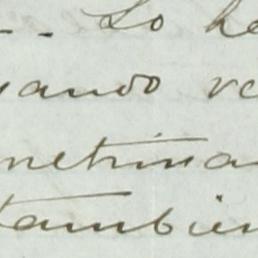 Lo he
uando re
netrina
tambien